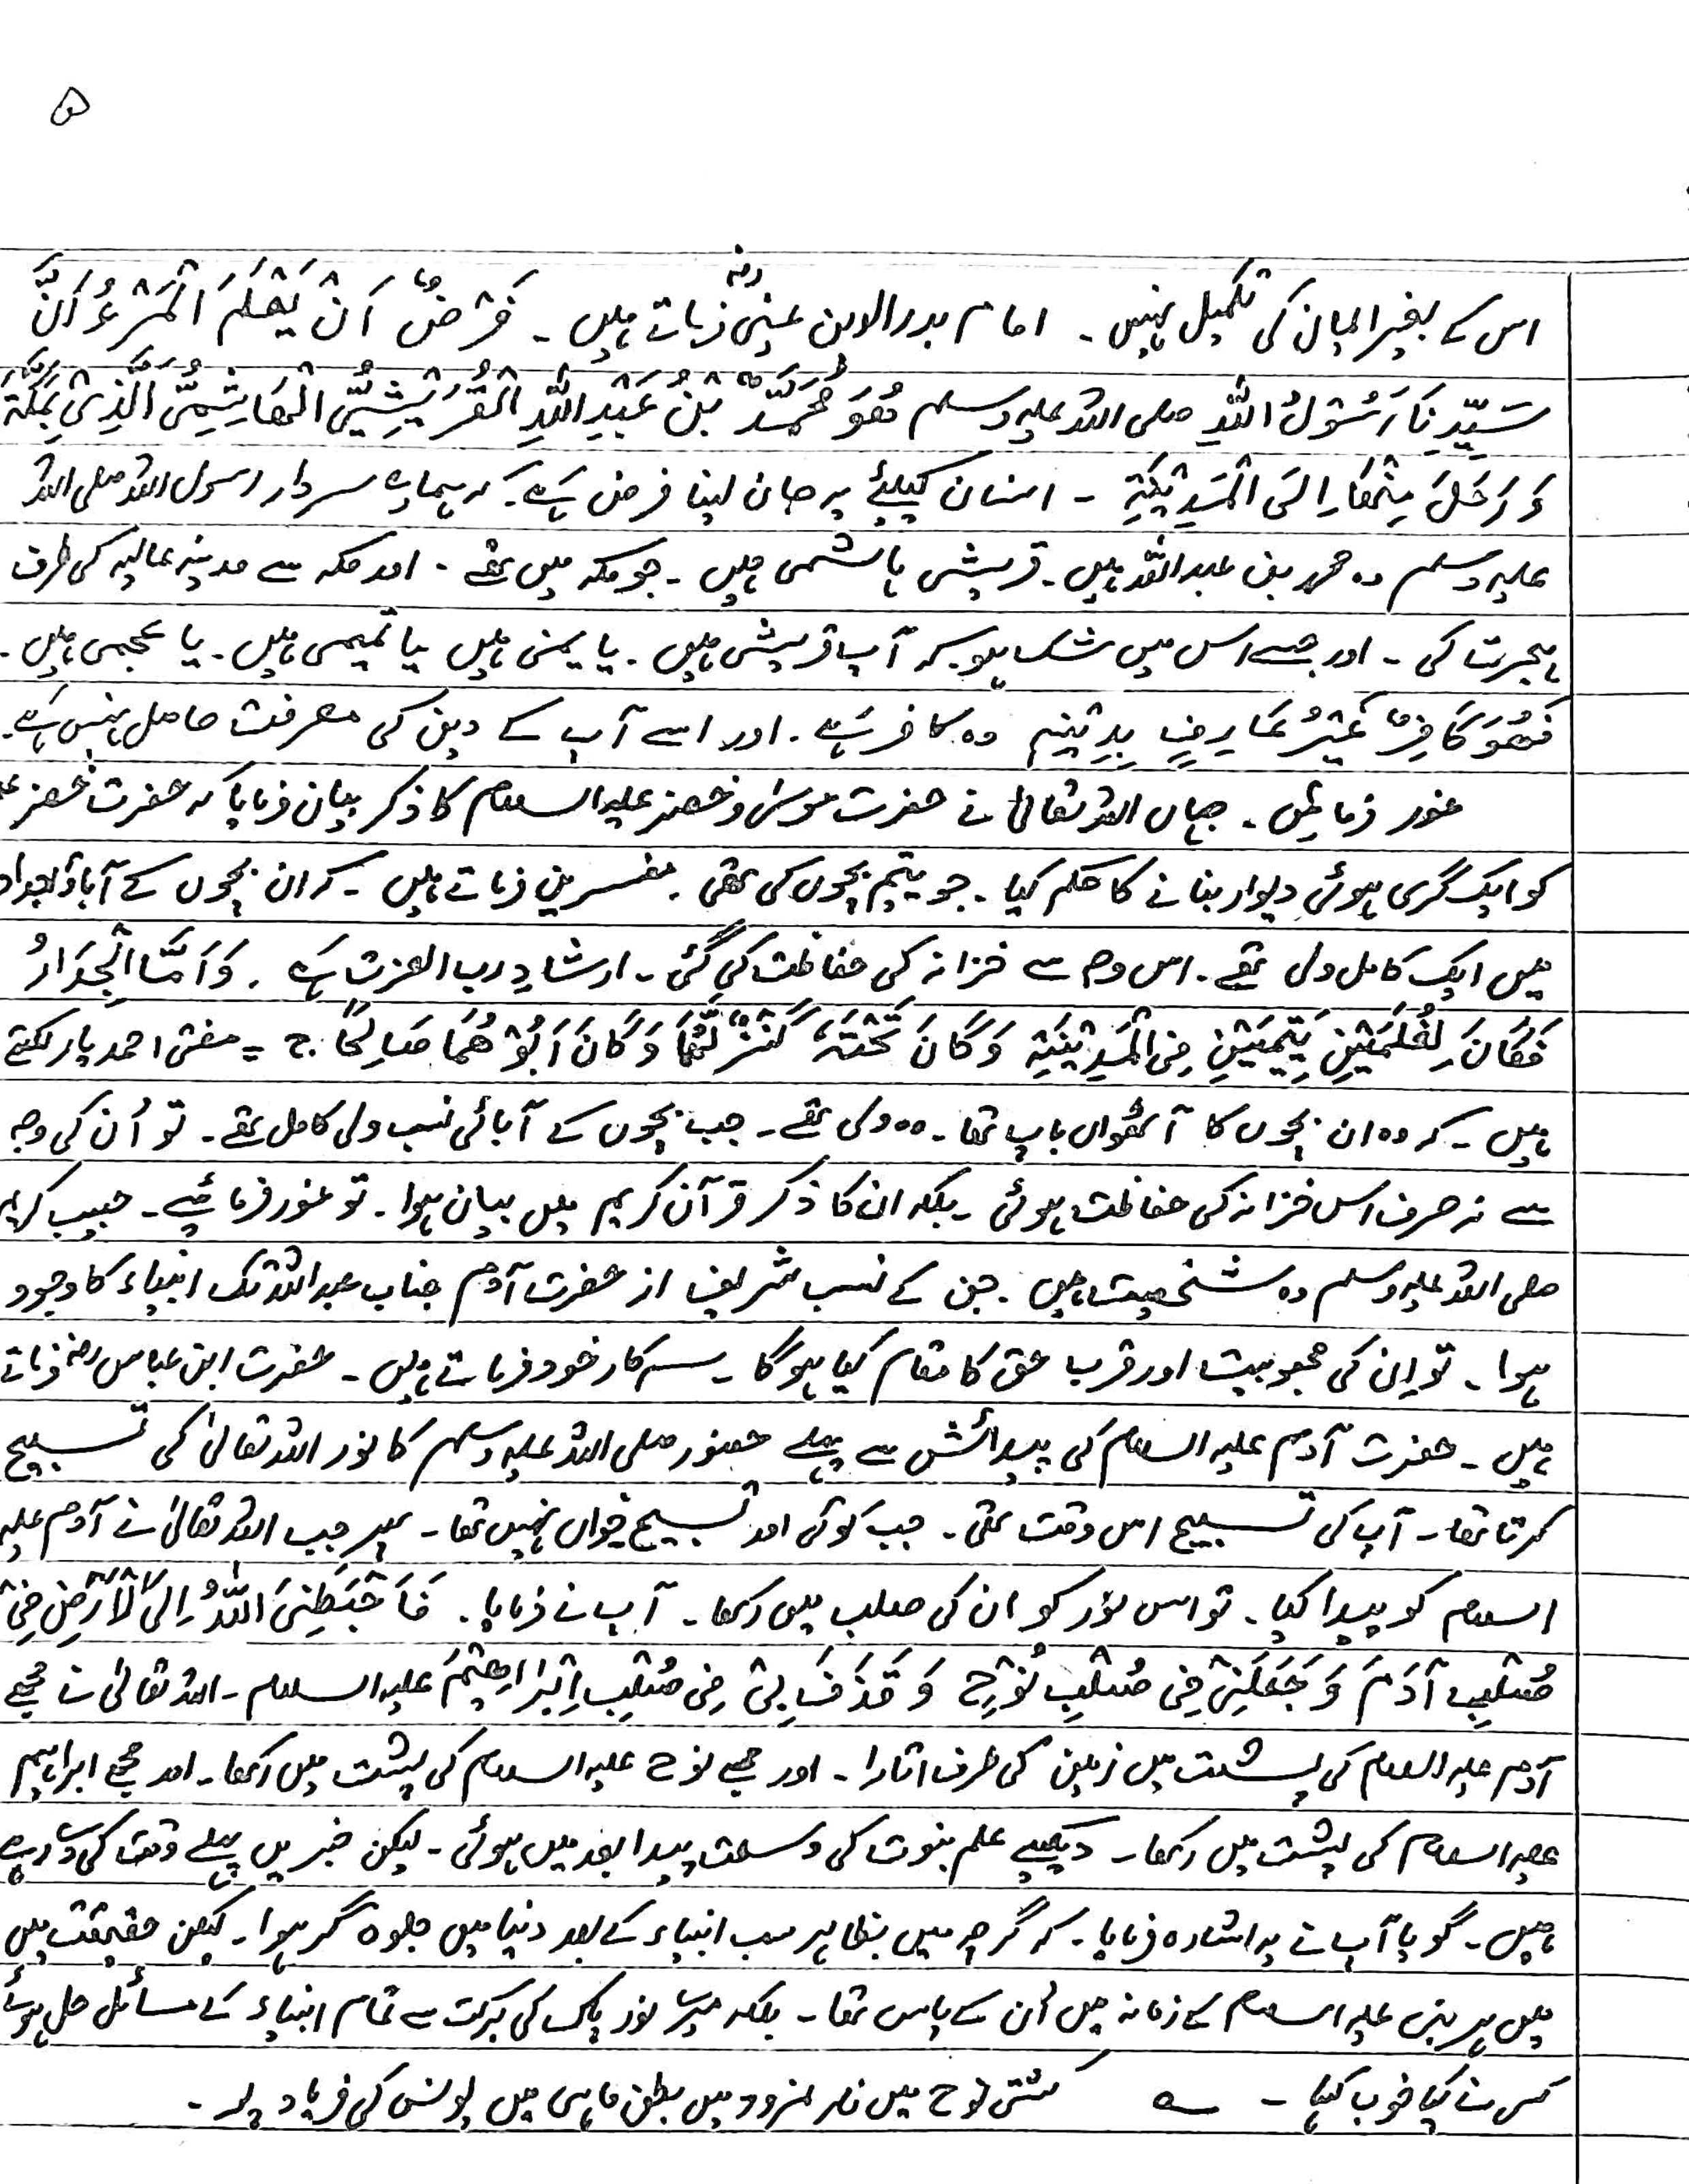 ۵
اس کے بغیر ایمان کی تکمیل نہیں ۔ امام بدرالدین عینی رضہ فرماتے ہیں ۔ فَرْضٌ اَنْ یَعْلَمَ الْمَرْءُ اَنَّ
سَیِّدِنَا رَسُوْلُ اللّٰہِ صلی اللہ علیہ وسلم ھُوَ مُحَمَّدٌ بْنُ عَبْدِ اللّٰہِ الْقُرَیْشِیُّ الْھَاشِمِیُّ الَّذِیْ بِمَکَّۃَ
وَ رَحَلَ مِنْھَا اِلَی الْمَدِیْنَۃِ ۔ انسان کیلئے یہ جان لینا فرض ہے ۔ کہ ہمارے سردار رسول اللہ صلی اللہ
علیہ وسلم وہ محمد بن عبداللہ ہیں ۔ قریشی ہاشمی ہیں ۔ جو مکہ میں تھے ۔ اور مکہ سے مدینہ عالیہ کی طرف
ہجرت کی ۔ اور جسے اس میں شک ہو کہ آپ قریشی ہیں ۔ یا یمنی ہیں یا تمیمی ہیں ۔ یا عجمی ہیں ۔
فَھُوَ کَافِرٌ غَیْرُ عَارِفٍ بِدِیْنِہٖ وہ کافر ہے ۔ اور اسے آپ کے دین کی معرفت حاصل نہیں ہے ۔
غور فرمائیں ۔ جہاں اللہ تعالیٰ نے حضرت موسیٰ و خضر علیہ السلام کا ذکر بیان فرمایا کہ حضرت خضر
کو ایک گری ہوئی دیوار بنانے کا حکم کیا ۔ جو یتیم بچوں کی تھی ۔ مفسرین فرماتے ہیں ۔ کہ ان بچوں کے آباؤ اجداد
میں ایک کامل ولی تھے ۔ اس وجہ سے خزانہ کی حفاظت کی گئی ۔ ارشادِ رب العزت ہے ۔ وَاَمَّا الْجِدَارُ
فَکَانَ لِغُلٰمَیْنِ یَتِیْمَیْنِ فِی الْمَدِیْنَۃِ وَکَانَ تَحْتَہٗ کَنْزٌ لَّھُمَا وَکَانَ اَبُوْھُمَا صَالِحًا ج = مفتی احمد یار لکھتے
ہیں ۔ کہ وہ ان بچوں کا آٹھواں باپ تھا ۔ وہ ولی تھے ۔ جب بچوں کے آبائی نسب ولی کامل تھے ۔ تو اُن کی وجہ
سے نہ صرف اس خزانہ کی حفاظت ہوئی ۔ بلکہ ان کا ذکر قرآن کریم میں بیان ہوا ۔ تو غور فرمائیے ۔ حبیب کریم
صلی اللہ علیہ وسلم وہ شخصیت ہیں ۔ جن کے نسب شریف از حضرت آدم جناب عبداللہ تک انبیاء کا وجود
ہوا ۔ تو اِن کی محبوبیت اور قرب حق کا مقام کیا ہوگا ۔ سرکار خود فرماتے ہیں ۔ حضرت ابن عباس رضہ فرماتے
ہیں ۔ حضرت آدم علیہ السلام کی پیدائش سے پہلے حضور صلی اللہ علیہ وسلم کا نور اللہ تعالیٰ کی تسبیح
کرتا تھا ۔ آپ کی تسبیح اس وقت تھی ۔ جب کوئی اور تسبیح خواں نہیں تھا ۔ پھر جب اللہ تعالیٰ نے آدم علیہ
السلام کو پیدا کیا ۔ تو اس نور کو ان کی صلب میں رکھا ۔ آپ نے فرمایا ۔ فَاَھْبَطَنِیَ اللّٰہُ اِلَی الْاَرْضِ فِیْ
صُلْبِ آدَمَ وَ جَعَلَنِیْ فِی صُلْبِ نُوْحٍ وَ قَذَفَ بِیْ فِی صُلْبِ اِبْرَاھِیْمَ علیہ السلام ۔ اللہ تعالیٰ نے مجھے
آدم علیہ السلام کی پشت میں زمین کی طرف اتارا ۔ اور مجھے نوح علیہ السلام کی پشت میں رکھا ۔ اور مجھے ابراہیم
علیہ السلام کی پشت میں رکھا ۔ دیکھیے علم نبوت کی وسعت پیدا بعد میں ہوئی ۔ لیکن خبریں پہلے وقت کی دے رہے
ہیں ۔ گویا آپ نے یہ اشارہ فرمایا ۔ کہ گرچہ میں بظاہر سب انبیاء کے بعد دنیا میں جلوہ گر ہوا ۔ لیکن حقیقت میں
میں ہر نبی علیہ السلام کے زمانہ میں اُن کے پاس تھا ۔ بلکہ میرے نور پاک کی برکت سے تمام انبیاء کے مسائل حل ہوئے
کس نے کیا خوب کہا ۔ کشتی نوح میں نار نمرود میں بطن ماہی میں یونس کی فریاد پر ۔